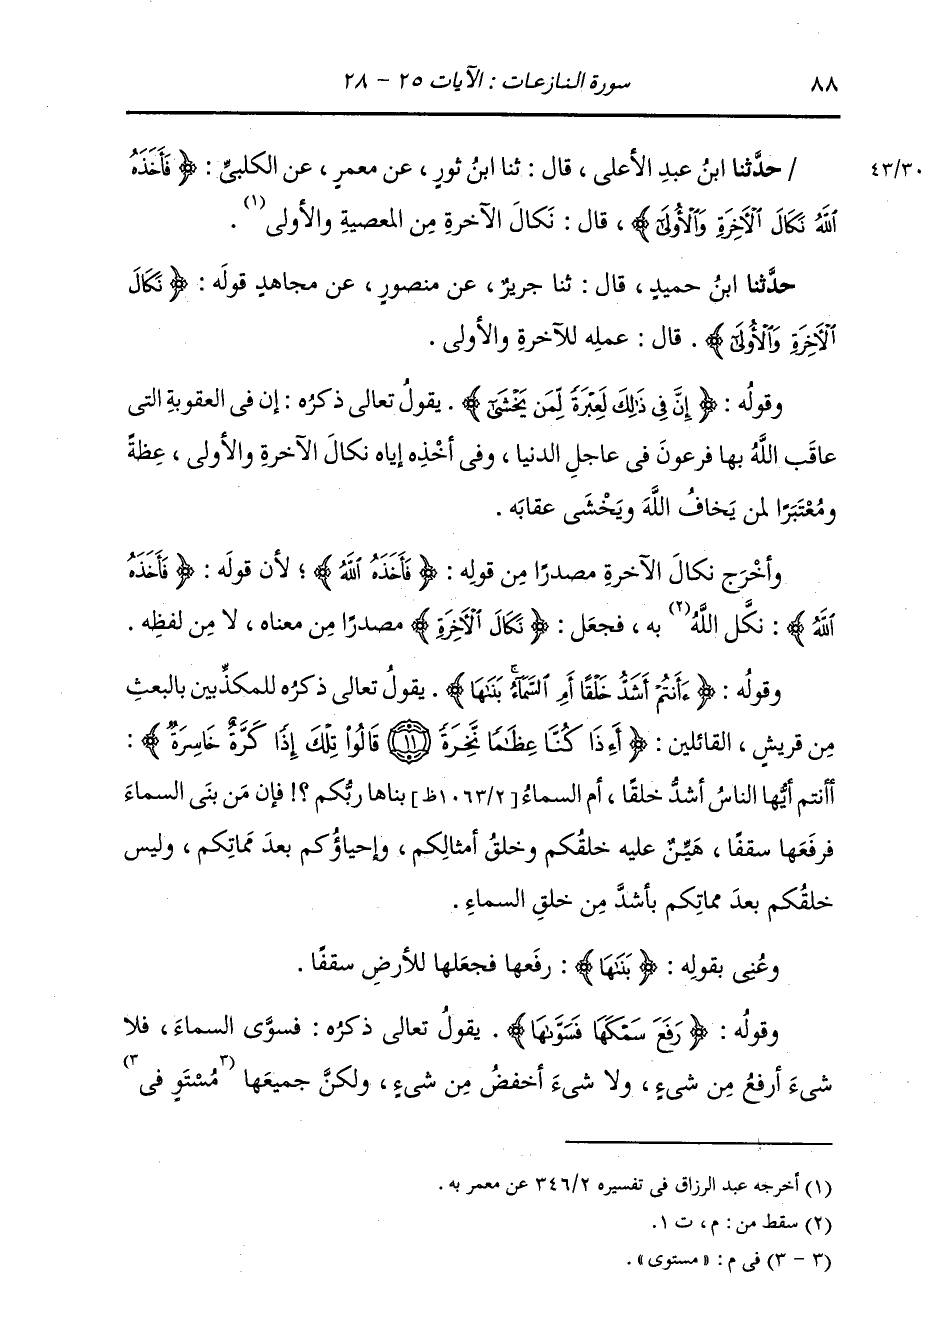 ٨٨ سورة النازعات : الآيات ٢٥ - ٢٨
٤٣/٣٠ / حدَّثنا ابنُ عبدِ الأعلى ، قال : ثنا ابنُ ثورٍ ، عن معمرٍ ، عن الكلبيِّ : ﴿ فَأَخَذَهُ
ٱللَّهُ نَكَالَ ٱلْأَخِرَةِ وَٱلْأُولَىٰٓ ﴾ ، قال : نَكالَ الآخرةِ مِن المعصيةِ والأولى (١) .
حدَّثنا ابنُ حميدٍ ، قال : ثنا جريرٌ ، عن منصورٍ ، عن مجاهدٍ قولَه : ﴿ نَكَالَ
ٱلْأَخِرَةِ وَٱلْأُولَىٰٓ ﴾ . قال : عملِه للآخرةِ والأولى .
وقولُه : ﴿ إِنَّ فِى ذَٰلِكَ لَعِبْرَةً لِّمَن يَخْشَىٰٓ ﴾ . يقولُ تعالى ذكرُه : إن فى العقوبةِ التى
عاقَب اللَّهُ بها فرعونَ فى عاجلِ الدنيا ، وفى أخْذِه إياه نكالَ الآخرةِ والأولى ، عِظةً
ومُعْتَبَرًا لمن يَخافُ اللَّهَ ويَخْشَى عقابَه .
وأخْرَج نكالَ الآخرةِ مصدرًا مِن قولِه : ﴿ فَأَخَذَهُ ٱللَّهُ ﴾ ؛ لأن قولَه : ﴿ فَأَخَذَهُ
ٱللَّهُ ﴾ : نكَّل اللَّهُ (٢) به ، فجعَل : ﴿ نَكَالَ ٱلْأَخِرَةِ ﴾ مصدرًا مِن معناه ، لا مِن لفظِه .
وقولُه : ﴿ ءَأَنتُمْ أَشَدُّ خَلْقًا أَمِ ٱلسَّمَآءُ ۚ بَنَىٰهَا ﴾ . يقولُ تعالى ذكرُه للمكذِّبين بالبعثِ
مِن قريشٍ ، القائلين : ﴿ أَءِذَا كُنَّا عِظَٰمًا نَّخِرَةً ﴿١١﴾ قَالُوا۟ تِلْكَ إِذًا كَرَّةٌ خَاسِرَةٌ ﴾ :
أأنتم أيُّها الناسُ أشدُّ خلقًا ، أم السماءُ [١٠٦٣/٢ظ] بناها ربُّكم ؟! فإن مَن بنَى السماءَ
فرفَعها سقفًا ، هَيِّنٌ عليه خلقُكم وخلقُ أمثالِكم ، وإحياؤُكم بعدَ مماتِكم ، وليس
خلقُكم بعدَ مماتِكم بأشدَّ مِن خلقِ السماءِ .
وعُنِى بقولِه : ﴿ بَنَىٰهَا ﴾ : رفَعها فجعَلها للأرضِ سقفًا .
وقولُه : ﴿ رَفَعَ سَمْكَهَا فَسَوَّىٰهَا ﴾ . يقولُ تعالى ذكرُه : فسوَّى السماءَ ، فلا
شىءَ أرفعُ مِن شىءٍ ، ولا شىءَ أخفضُ مِن شىءٍ ، ولكنَّ جميعَها (٣ مُسْتَوٍ فى ٣)
(١) أخرجه عبد الرزاق فى تفسيره ٣٤٦/٢ عن معمر به .
(٢) سقط من : م ، ت ١.
(٣ - ٣) فى م : « مستوى » .